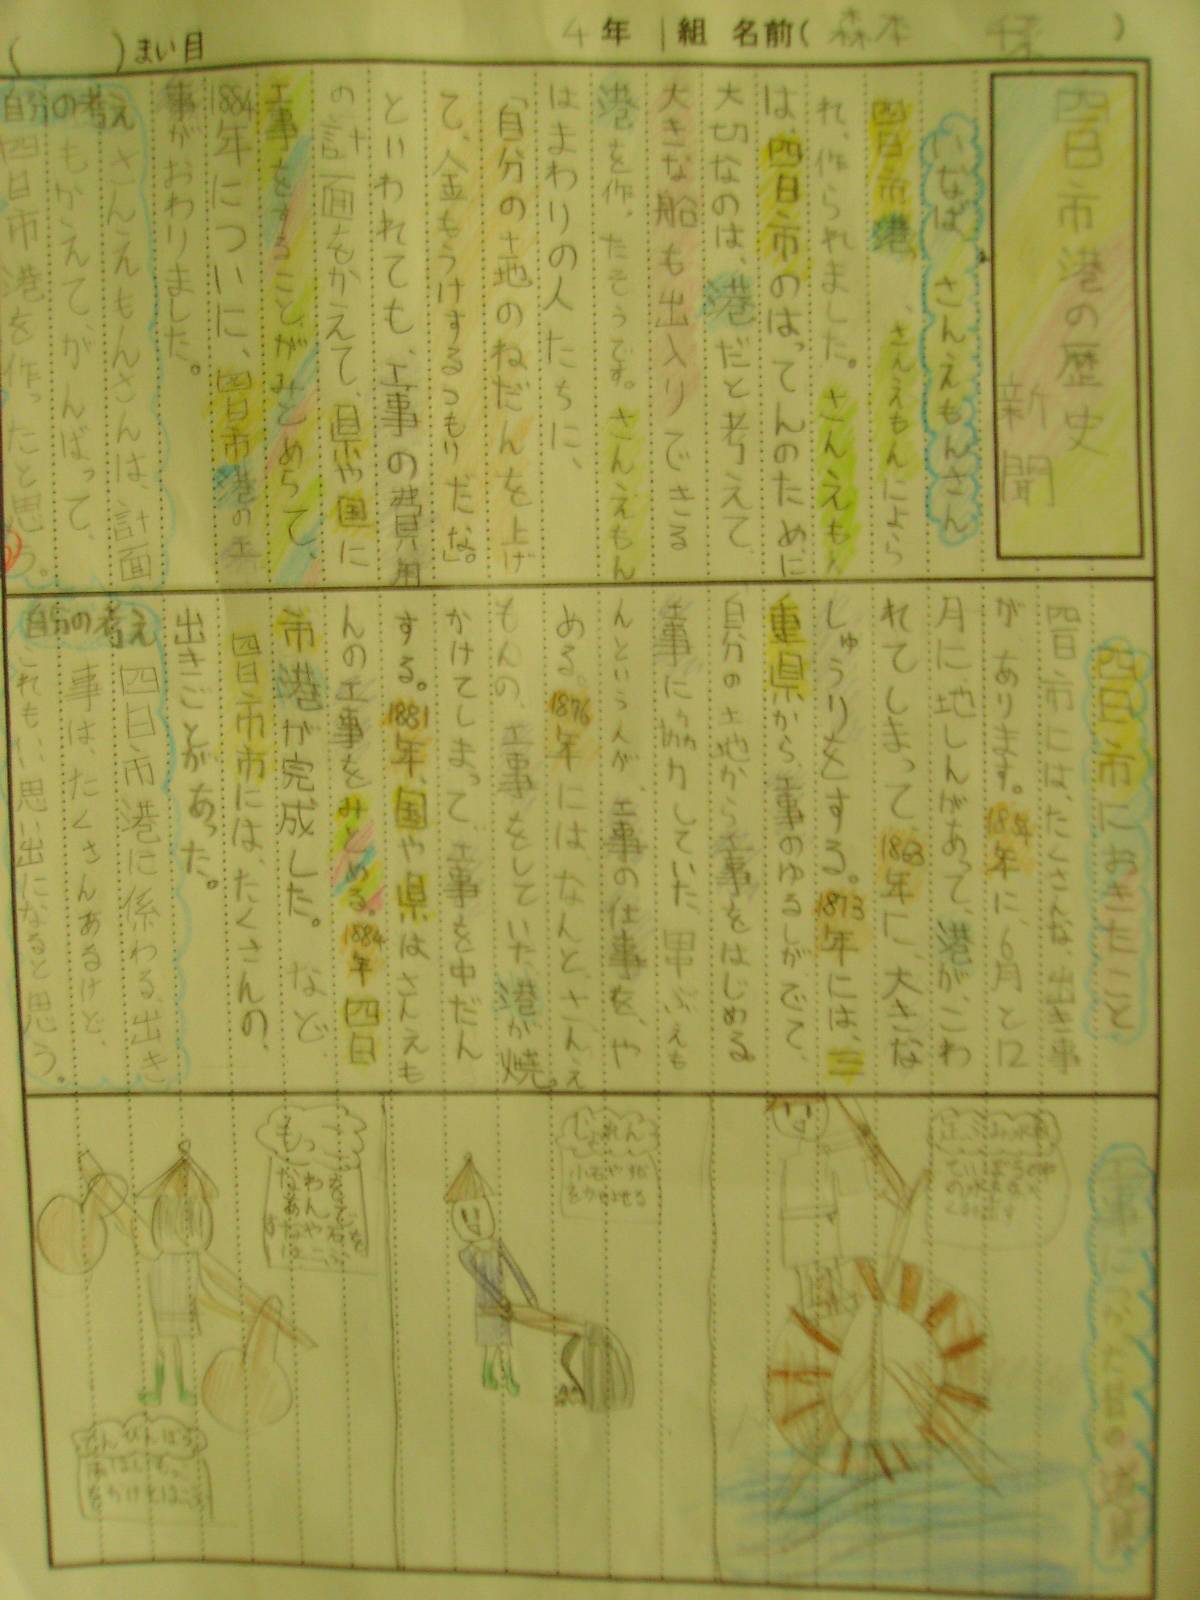 (　　)まい目
4年 1組 名前(森本　　)
四日市港の歴史
新聞
いなば さんえもんさん
四日市港、さんえもんによら
れ、作られました。さんえもん
は、四日市のはってんのために
大切なのは、港だと考えて、
大きな船も出入りできる
港を作ったそうです。さんえもん
はまわりの人たちに、
「自分の土地のねだんを上げ
て、金もうけするつもりだな。」
といわれても、工事の費用
の計画をかえて、県や国に
工事をすることがみとめらて、
1884年についに、四日市港の工
事がおわりました。
自分の考え
さんえもんさんは、計画
もかえて、がんばって、
四日市港を作ったと思う。
四日市におきたこと
四日市には、たくさんな、出き事
が あります。1854年に、6月と12
月に地しんがあって、港が、こわ
れてしまって、1863年に、大きな
しゅうりをする。1873年には、三
重県から、工事のゆるしがでて、
自分の土地から工事をはじめる
工事に協力していた、田中ぶえも
んという人が、工事の仕事を、や
める。1876年にはなんと、さんえ
もんの、工事をしていた、港が焼。
かけてしまって、工事を中だん
する。1881年、国や県はさんえも
んの工事をみとめる。1884年四日
市港が完成した。 など
四日市市には、たくさんの、
出きごとがあった。
自分の考え
四日市港に係わる、出き
事は、たくさんあるけど、
これもいい思い出になると思う。
工事につかた昔の道具
じょれん
小石やすな
をかきよせる
もっこ
てんびんぼう